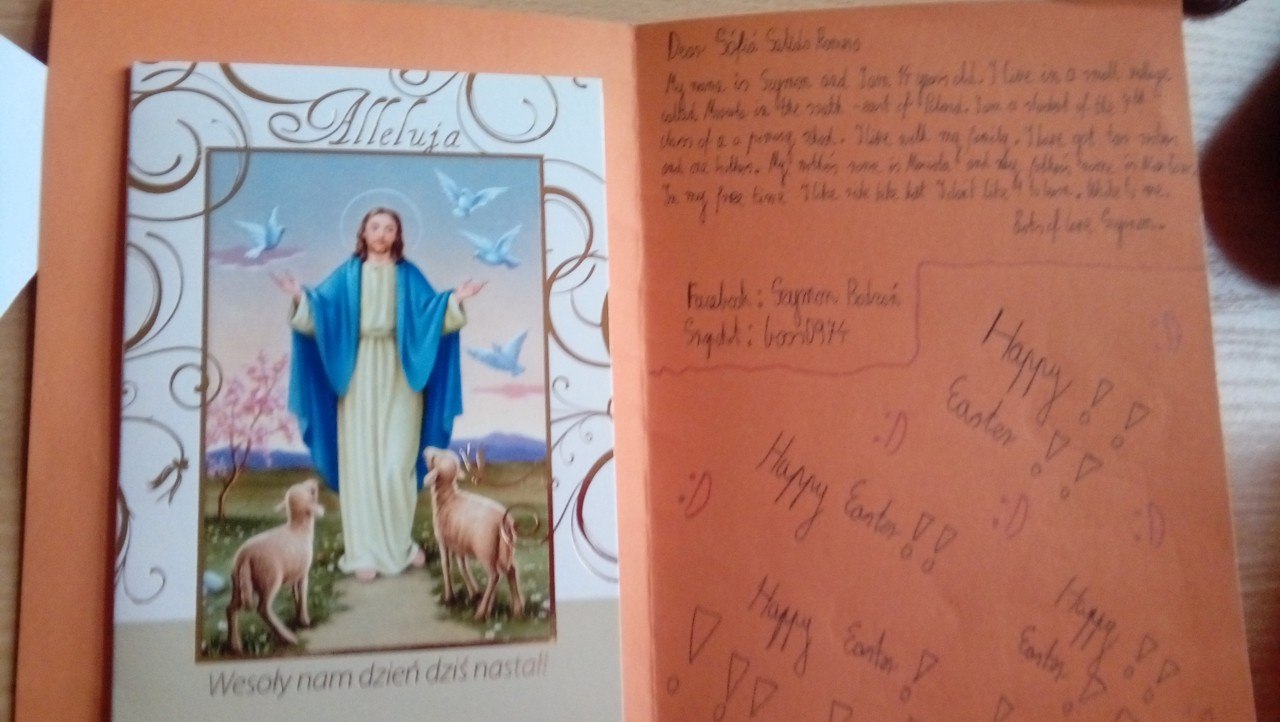 Alleluja
Wesoły nam dzień dziś nastał!
Dear Sófia Salido Romero
My name is Szymon and I am 14 years old. I live in a small village
called in the south-east of Poland. I am a student of the
class of a a primary school. I live with my family. I have got two sisters
and one brother. My mother's name is Mariola and my father's name is
In my free time I like ride bike but I don't like to learn. Write to me.
Lots of love Szymon.
Facebook: Szymon
Happy
Easter!!!!
Happy Easter!!
Happy Easter!
Happy
Easter!!!
:D
:D
:D
:D
:D